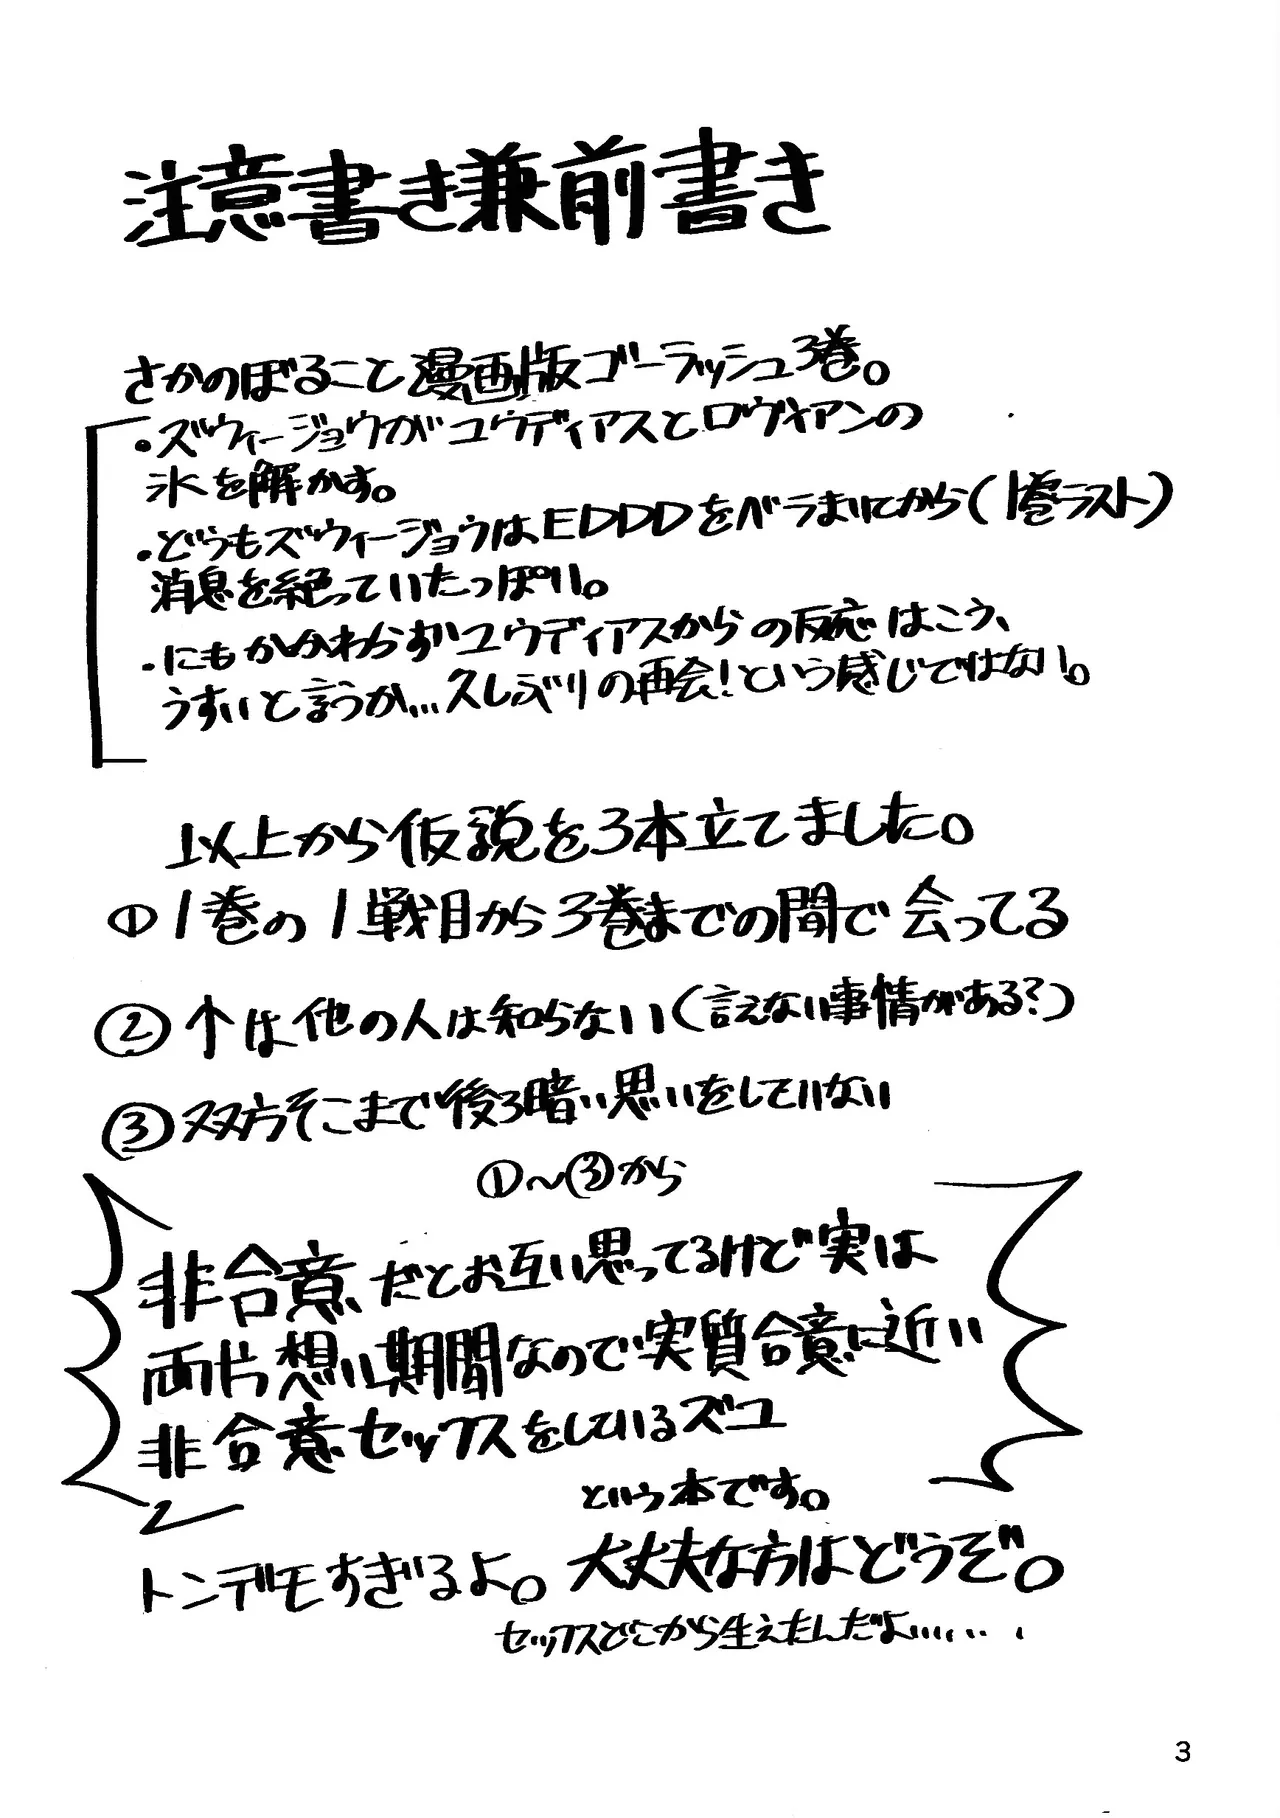 注意書き兼前書き
さかのぼること漫画版ゴーラッシュ3巻。
・ズウィージョウがユウディアスとロヴィアンの
氷を解かす。
・どうもズウィージョウはEDDDをベラまいてから(1巻ラスト)
消息を絶っていたっぽい。
・にもかかわらずユウディアスからの反応はこう、
うすいと言うか…久しぶりの再会!という感じではない。
以上から仮説を3本立てました。
①1巻の1戦目から3巻までの間で会ってる
②↑は他の人は知らない(言えない事情がある?)
③双方そこまで後ろ暗い思いをしていない
①~③から
非合意だとお互い思ってるけど実は
両片想い期間なので実質合意に近い
非合意セックスをしているズユ
という本です。
トンデモすぎるよ。大丈夫な方はどうぞ。
セックスどこから生えたんだよ……
3